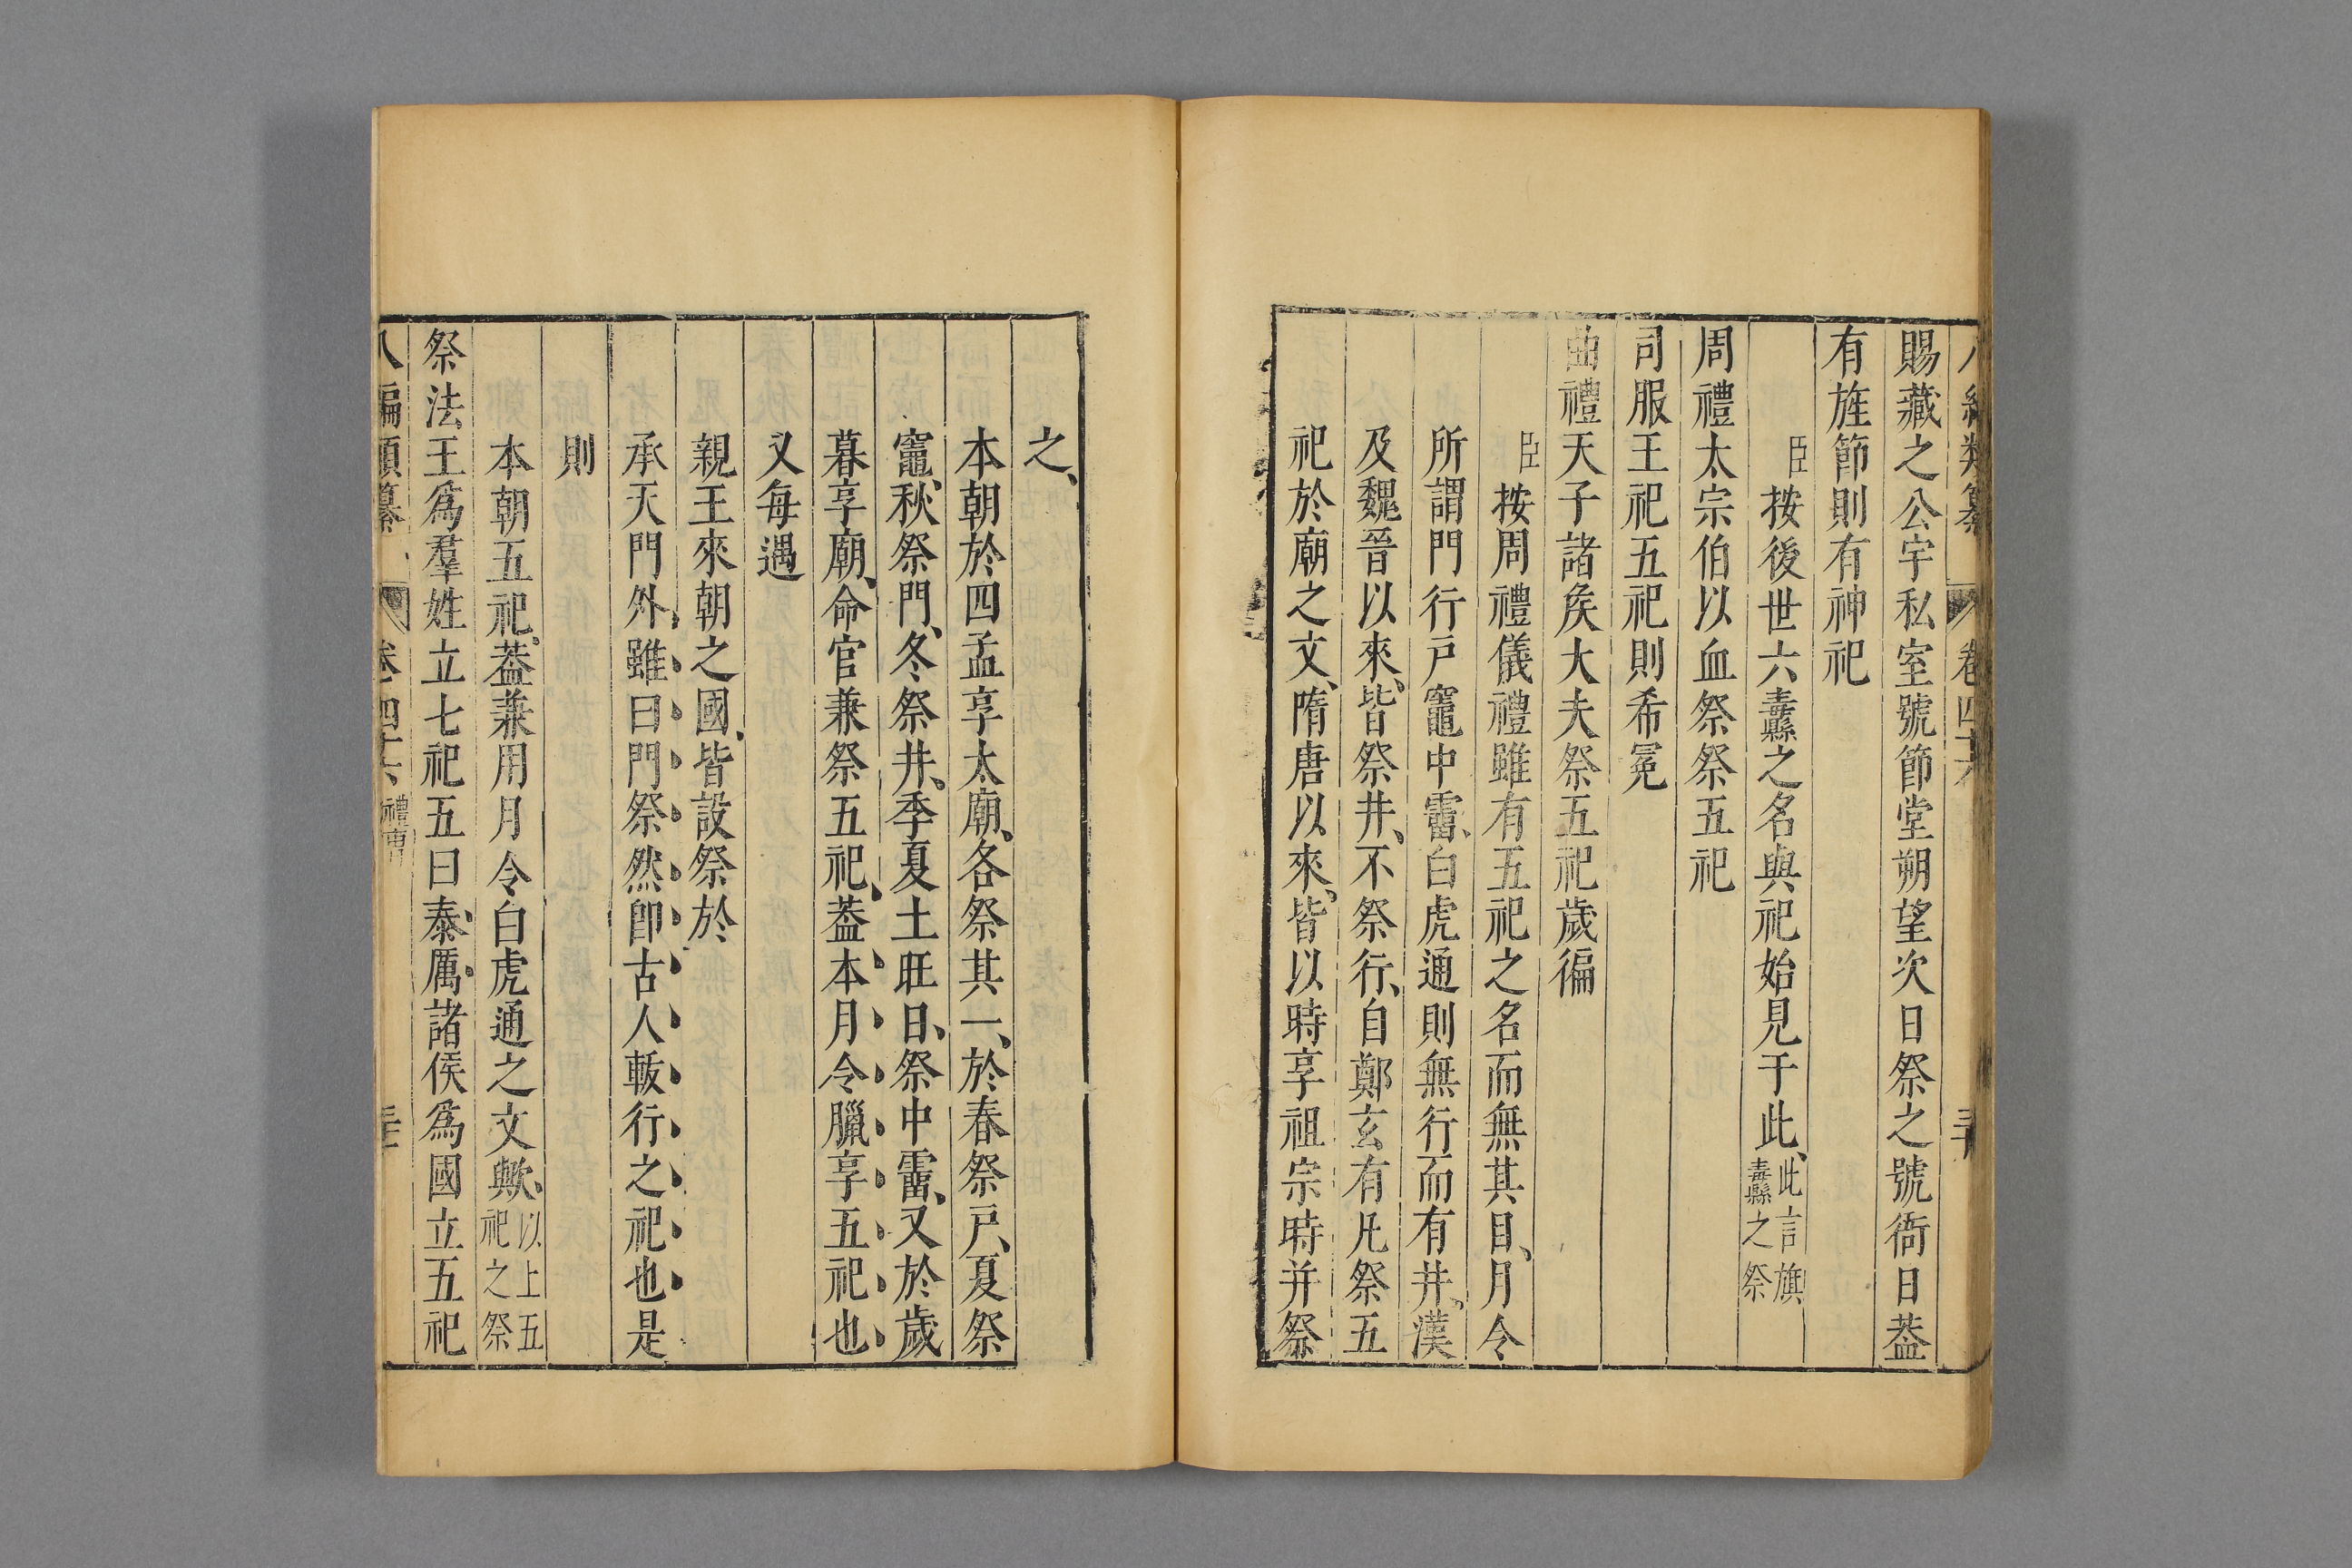 八編類纂 卷四十六
賜藏之公宇私室號節堂朔望次日祭之號衙日葢
有旌節則有神祀
臣按後世六纛之名與祀始見于此、此言旗纛之祭
周禮太宗伯以血祭祭五祀
司服王祀五祀則希冕
曲禮天子諸矦大夫祭五祀歲徧
臣按周禮儀禮雖有五祀之名而無其目、月令
所謂門行戸竈中霤、白虎通則無行而有井、漢
及魏晉以來、皆祭井、不祭行、自鄭玄有凡祭五
祀於廟之文、隋唐以來、皆以時享祖宗時并祭
之、
本朝於四孟享太廟、各祭其一、於春祭戸、夏祭
竈、秋祭門、冬祭井、季夏土旺日、祭中霤、又於歲
暮享廟、命官兼祭五祀、葢本月令臘享五祀也
又每遇
親王來朝之國、皆設祭於
承天門外、雖曰門祭然卽古人軷行之祀也是
則
本朝五祀、葢兼用月令白虎通之文歟、以上五祀之祭
祭法、王爲羣姓立七祀五曰泰厲、諸侯爲國立五祀
八編類纂 卷四十六 禮曹